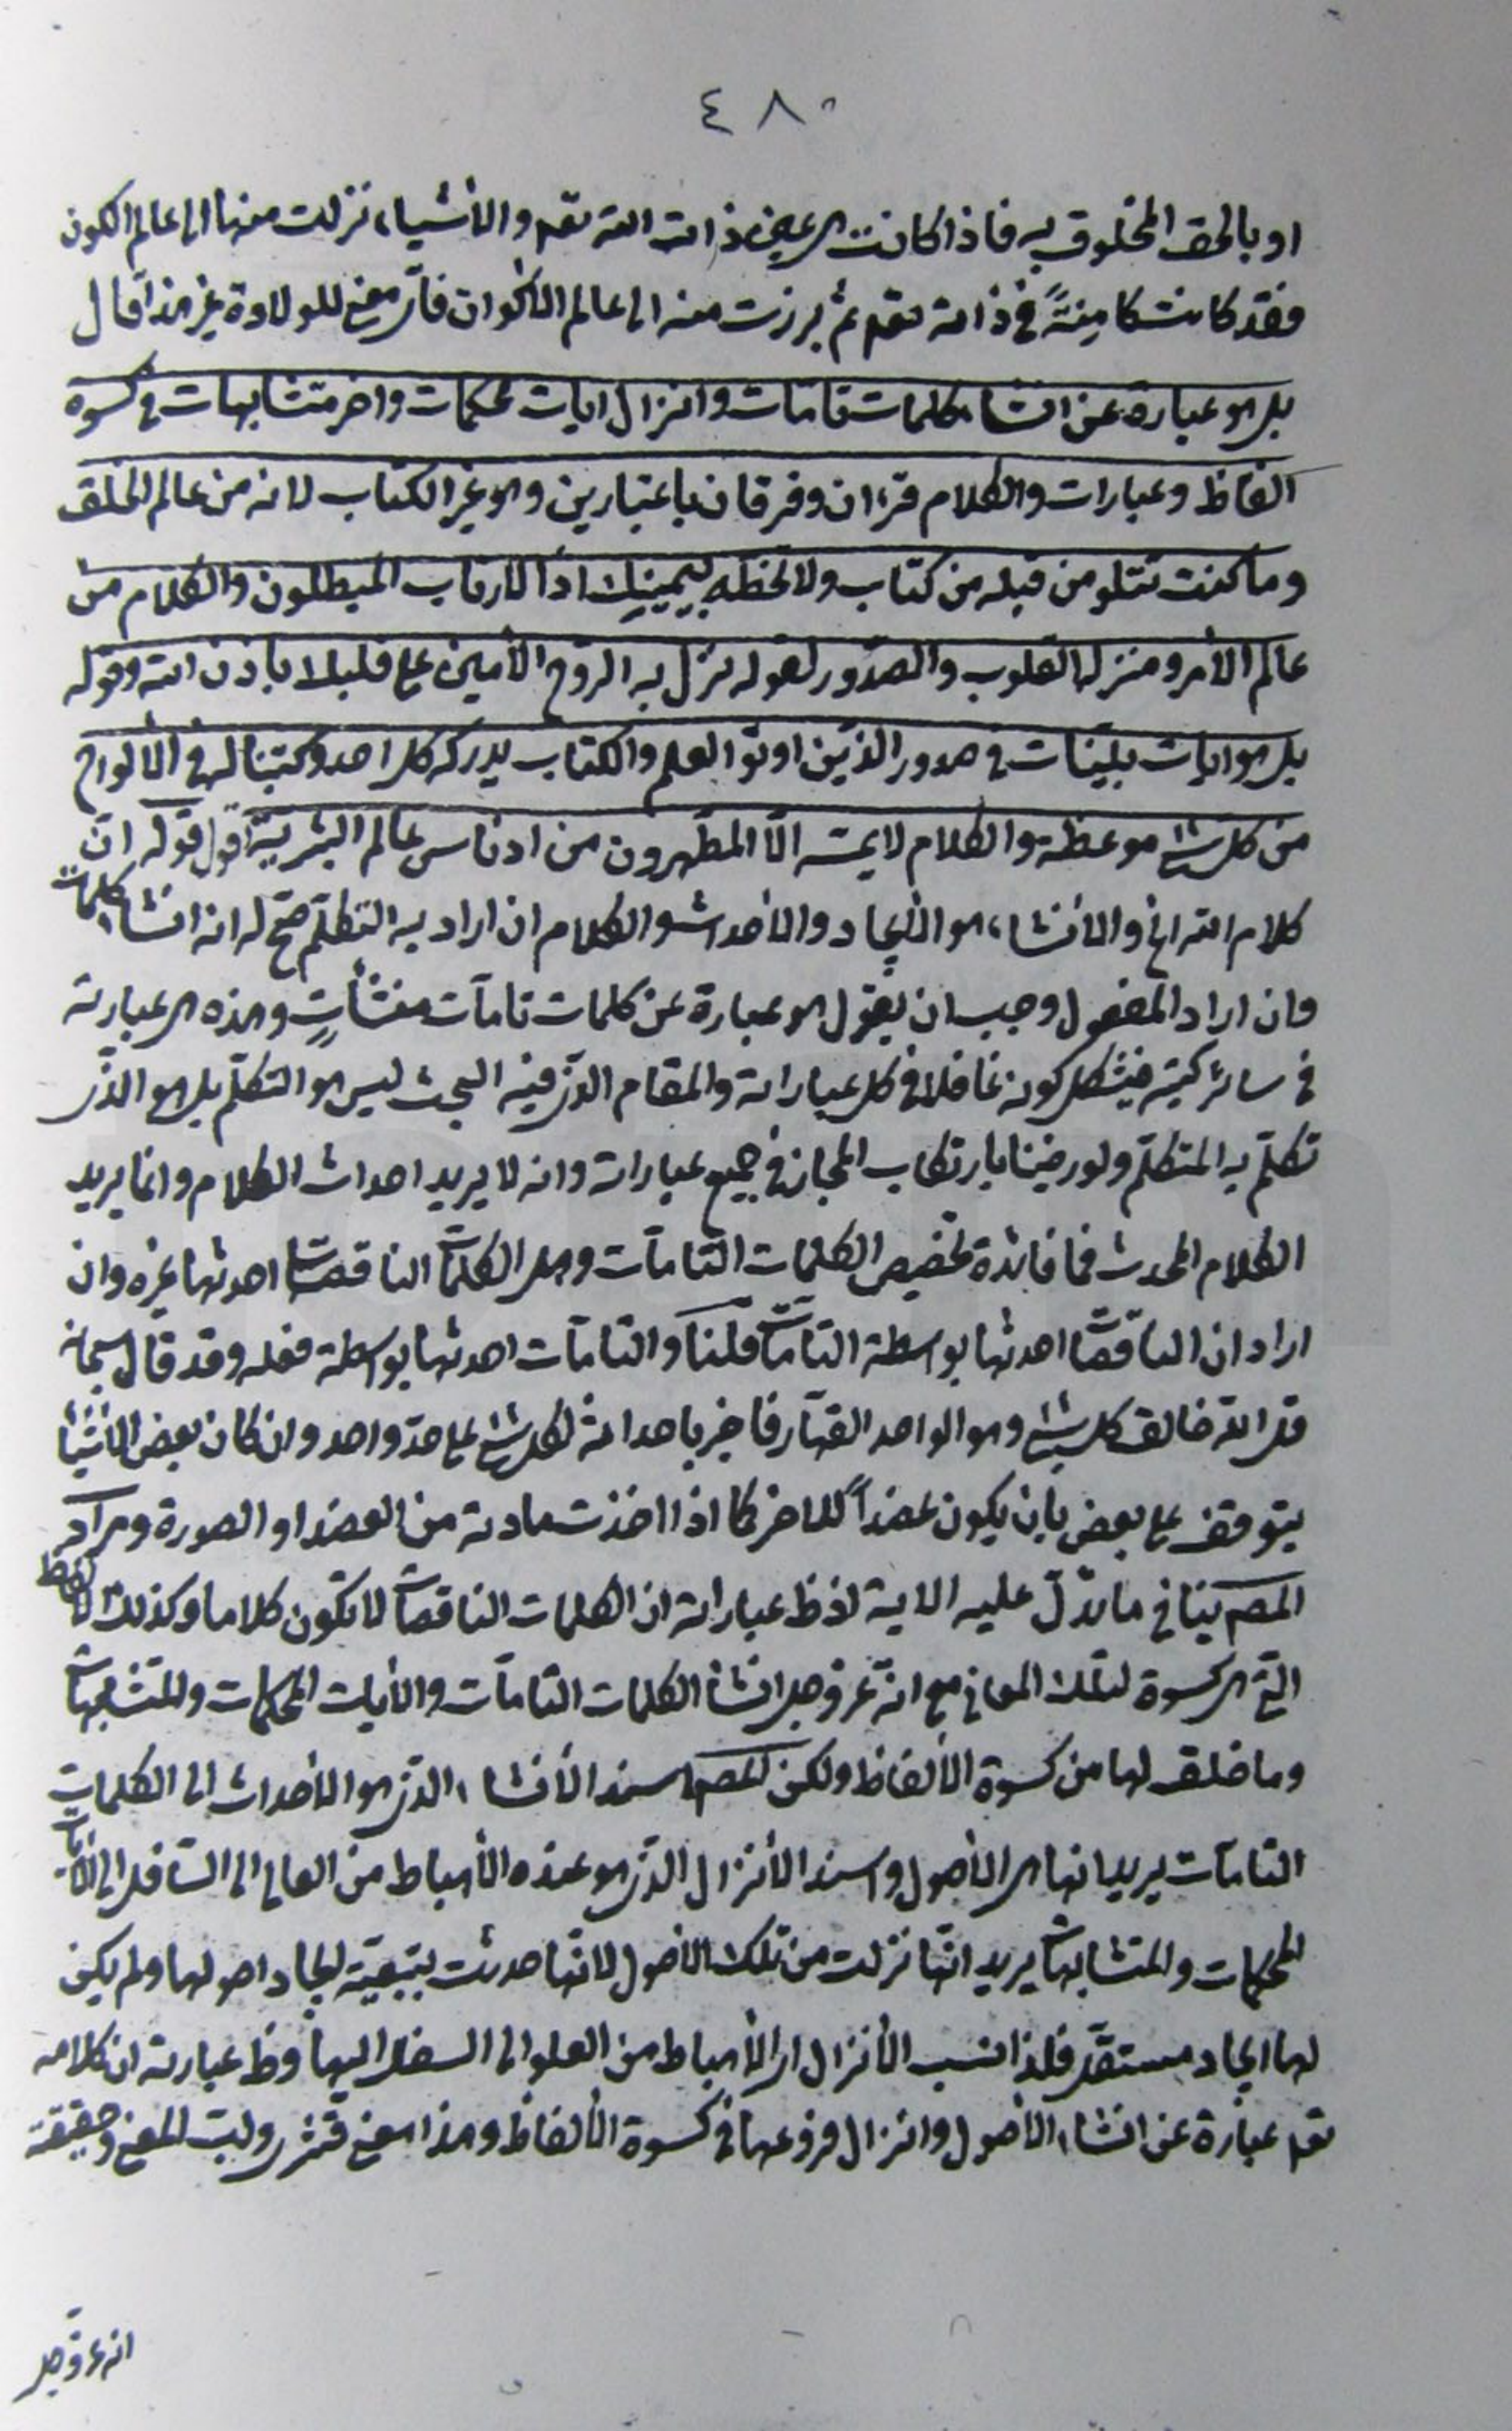 ٤٨٠
او بالحق المخلوق به فاذا كانت هى عين ذات الله تعه والأشياء نزلت منها الى عالم الكون
فقد كانت كامنةً فى ذاته تعه ثم برزت منه الى عالم الأكوان فاىّ معنى للولادة غير هذا قال
بل هو عبارة عن انشاء كلمات تامات وانزال ايات محكمات واخر متشابهات فى كسوة
الفاظ وعبارات والكلام قرءان وفرقان باعتبارين وهو غير الكتاب لانه من عالم الخلق
وما كنت تتلو من قبله من كتاب ولا تخطه بيمينك اذاً لارتاب المبطلون والكلام من
عالم الأمر ومنزله القلوب والصدور لقوله نزل به الروح الأمين على قلبك باذن الله وقوله
بل هو ايات بينات فى صدور الذين اوتوا العلم والكتاب يدركه كل احد وكتبنا له فى الألواح
من كل شئ موعظة والكلام لا يمسه الّا المطهرون من ادناس عالم البشرية اقول قوله انّ
كلام الله الخ والأنشاء هو الأيجاد والأحداث والكلام ان اراد به التكلّم صحّ له انه انشاء كلمات
وان اراد المفعول وجب ان يقول هو عبارة عن كلمات تامات منشأتٍ وهذه هى عبارته
فى سائر كتبه فيشكل كونه غافلا فى كل عباراته والمقام الذى فيه البحث ليس هو التكلّم بل هو الذى
تكلّم به المتكلّم ولو رضينا بارتكاب المجاز فى جميع عباراته وانه لا يريد احداث الكلام وانما يريد
الكلام المحدث فما فائدة تخصيص الكلمات التامات وهل الكلمات الناقصات احدثها غيره وان
اراد ان الناقصات احدثها بواسطة التامات قلنا والتامات احدثها بواسطة فعله وقد قال سبحانه
قل الله خالق كل شئ وهو الواحد القهّار فاخبر باحداثه لكل شئ على حدّ واحد وان كان بعض الأشياء
يتوقف على بعض بأن يكون عضداً للاخر كما اذا اخذت مادته من العضد او الصورة ومراد
المصـ ينافى ما تدلّ عليه الاية لأن ظ عباراته ان الكلمات الناقصات لا تكون كلاما وكذلك الفاظ
التى هى كسوة لتلك المعانى مع انه عز وجل انشأ الكلمات التامات والأيات المحكمات والمتشابهات
وما خلق لها من كسوة الألفاظ ولكن المصـ اسند الأنشاء الذى هو الأحداث الى الكلمات
التامات يريد انها هى الأصول واسند الأنزال الذى هو عنده الأهباط من العالى الى السافل الى الأيات
المحكمات والمتشابهات يريد انّها نزلت من تلك الأصول لانّها حدثت بتبعيّة ايجاد اصولها ولم يكن
لها ايجاد مستقل فلذا نسب الأنزال اى الأهباط من العلو الى السفل اليها وظ عبارته ان كلامه
تعه عبارة عن انشاء الأصول وانزال فروعها فى كسوة الألفاظ وهذا معنى قشرى ولبّ المعنى وحقيقته
انه عز وجل